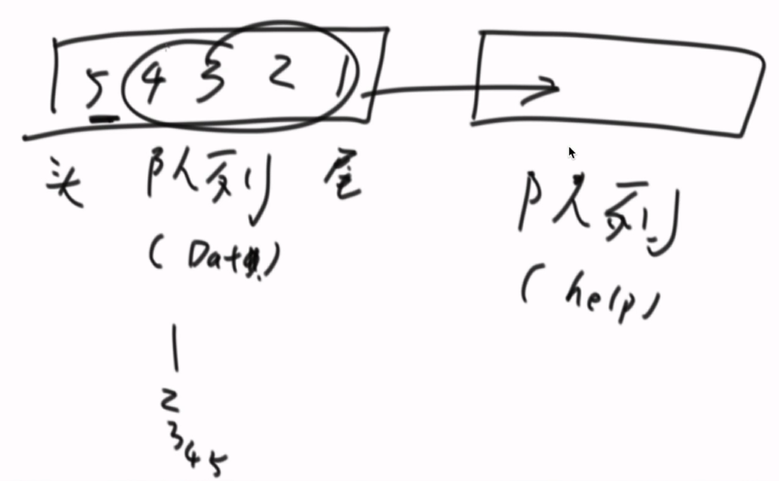 5 4 3 2 1
头 队列 尾 队列
(Data) (help)
1
2
3
4 5